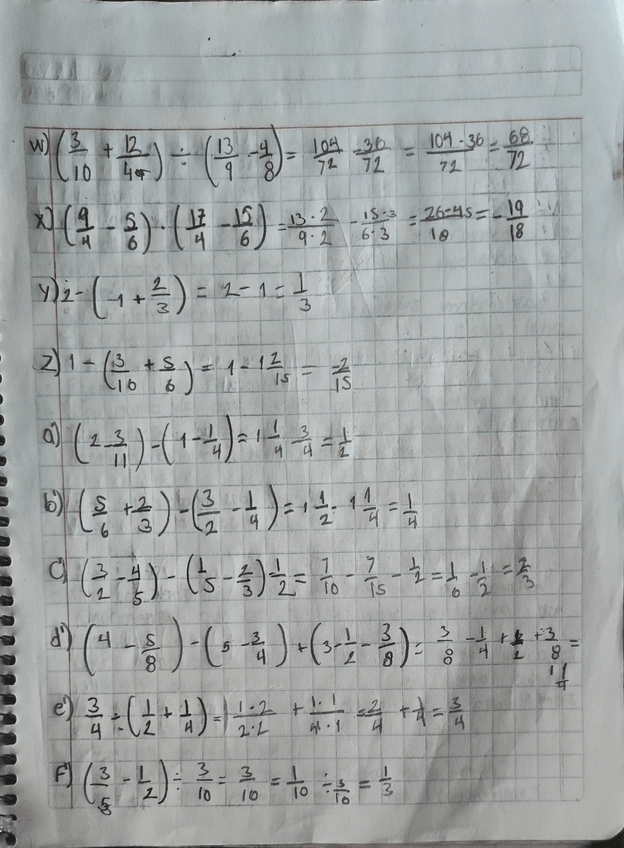 w) (3/10 + 12/4) ÷ (13/9 - 4/8) = 104/72 - 36/72 = 104-36/72 = 68/72
x) (9/4 - 5/6) · (17/4 - 15/6) = 13·2/9·2 - 15·3/6·3 = 26-45/18 = -19/18
y) 2 - (1 + 2/3) = 2 - 1 = 1/3
z) 1 - (3/10 + 5/6) = 1 - 1 2/15 = -2/15
a') (2 - 3/11) - (1 - 1/4) = 1 1/4 - 3/4 = 1/2
b') (5/6 + 2/3) - (3/2 - 1/4) = 1 1/2 - 1 1/4 = 1/4
c') (3/2 - 4/5) - (1/5 - 2/3) 1/2 = 7/10 - 7/15 - 1/2 = 1/6 - 1/2 = 2/3
d') (4 - 5/8) - (5 - 3/4) + (3 - 1/2 - 3/8) = 3/8 - 1/4 + 1/2 + 3/8 =
e') 3/4 ÷ (1/2 + 1/4) = 1·2/2·2 + 1·1/4·1 = 2/4 + 1/4 = 3/4
f') (3/5 - 1/2) ÷ 3/10 = 3/10 = 1/10 ÷ 3/10 = 1/3